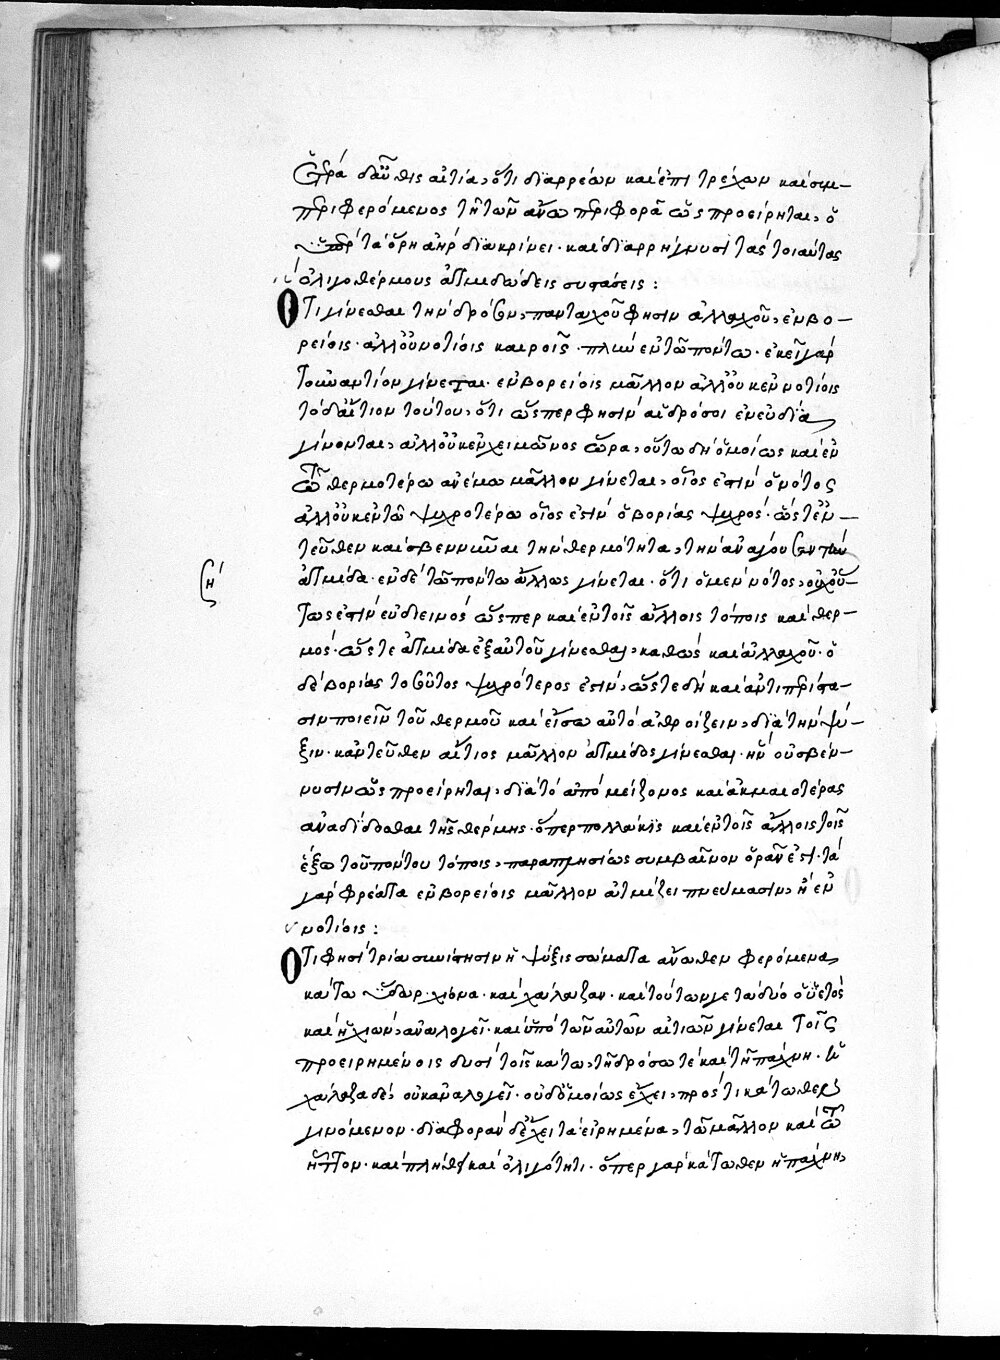 ἑτέρα δ' αὖθις αἰτία, ὅτι διαρρέων καὶ ἐπιτρέχων καὶ συμ-
περιφερόμενος τῇ τῶν ἄνω περιφορᾷ ὡς προείρηται, ὁ
ὑπὲρ τὰ ὄρη ἀὴρ διακρίνει· καὶ διαρρήγνυσι τὰς τοιαύτας
ὀλιγοθέρμους ἀτμιδώδεις συστάσεις:
Ὅτι γίνεσθαι τὴν δρόσον, πανταχοῦ φησιν ἀλλαχοῦ, ἐν βο-
ρείοις· ἀλλ' οὐ νοτίοις καιροῖς· πλὴν ἐν τῷ πόντω· ἐκεῖ γὰρ
τοὐναντίον γίνεται· ἐν βορείοις μᾶλλον ἀλλ' οὐκ ἐν νοτίοις
τὸ δ' αἴτιον τούτου, ὅτι ὥσπερ φησὶν αἱ δρόσοι ἐν εὐδία
γίνονται, ἀλλ' οὐκ ἐν χειμῶνος ὥρα, οὕτω δὴ ὁμοίως καὶ ἐν
τῶ θερμοτέρω ἀνέμω μᾶλλον γίνεται, οἷος ἐστὶν ὁ νότος
ἀλλ' οὐκ ἐν τῶ ψυχροτέρω οἷος ἐστὶν ὁ βορίας ψυχρός· ὥστ' ἐν-
τεῦθεν καὶ σβεννῦναι τὴν θερμότητα, τὴν ἀνάγουσαν τὴν
ἀτμίδα· ἐν δὲ τῶ πόντω ἄλλως γίνεται· ὅτι ὁ μὲν νότος, οὐχ οὕ-
τως ἐστὶν εὐδιεινὸς ὥσπερ καὶ ἐν τοῖς ἄλλοις τόποις καὶ θερ-
μός· ὥστε ἀτμίδα ἐξ αὐτοῦ γίνεσθαι, καθὼς καὶ ἀλλαχοῦ· ὁ
δὲ βορίας τοσοῦτος ψυχρότερος ἐστὶν, ὥστε δὴ καὶ ἀντιπερίστα-
σιν ποιεῖν τοῦ θερμοῦ καὶ εἴσω αὐτὸ ἀθροίζειν, διὰ τὴν ψύ-
ξιν· κἀντεῦθεν αἴτιος μᾶλλον ἀτμίδος γίνεσθαι· ἣν οὐ σβέν-
νυσιν ὡς προείρηται, διὰ τὸ ἀπὸ μείζονος καὶ ἀκμαιοτέρας
ἀναδίδοσθαι τῆς θέρμης· ὅπερ πολλάκις καὶ ἐν τοῖς ἄλλοις τοῖς
ἔξω τοῦ πόντου τόποις, παραπλησίως συμβαῖνον ὁρᾶν ἐστι· τὰ
γὰρ φρέατα ἐν βορείοις μᾶλλον ἀτμίζει πνεύμασιν, ἢ ἐν
νοτίοις:
Ὅτι φησὶ τρία συνίστησιν ἡ ψύξις σώματα ἄνωθεν φερόμενα,
κάτω ὕδωρ· χιόνα· καὶ χάλαζαν· καὶ τούτων γε τὰ δύο ὁ ὑετὸς
καὶ ἡ χιών, ἀναλογεῖ· καὶ ὑπὸ τῶν αὐτῶν αἰτιῶν γίνεται τοῖς
προειρημένοις δυσὶ τοῖς κάτω, τῆ δρόσω τὲ καὶ τῆ πάχνη· ἡ
χάλαζα δὲ, οὐκ ἀναλογεῖ· οὐδ' ὁμοίως ἔχει, πρός τι κάτωθεν
γινόμενον· διαφορὰν δ' ἔχει τὰ εἰρημένα, τῶ μᾶλλον καὶ τῶ
ἧττον· καὶ πλήθει καὶ ὀλιγότητι· ὅπερ γὰρ κάτωθεν ἡ πάχνη,